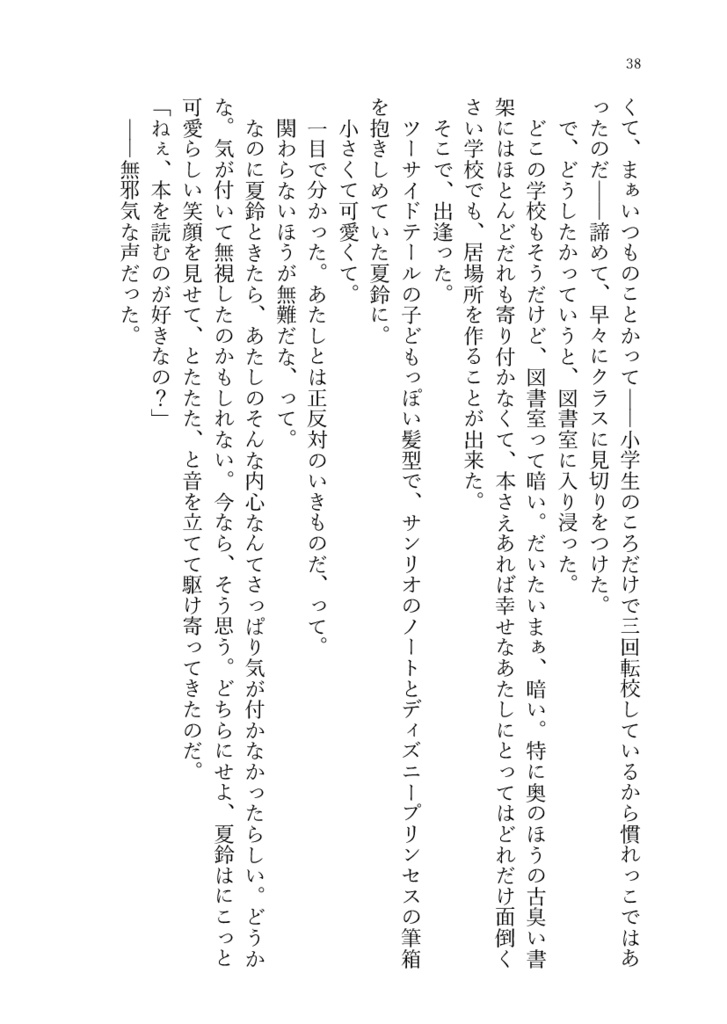 38
くて、まぁいつものことかって――小学生のころだけで三回転校しているから慣れっこではあ
ったのだ――諦めて、早々にクラスに見切りをつけた。
で、どうしたかっていうと、図書室に入り浸った。
どこの学校もそうだけど、図書室って暗い。だいたいまぁ、暗い。特に奥のほうの古臭い書
架にはほとんどだれも寄り付かなくて、本さえあれば幸せなあたしにとってはどれだけ面倒く
さい学校でも、居場所を作ることが出来た。
そこで、出逢った。
ツーサイドテールの子どもっぽい髪型で、サンリオのノートとディズニープリンセスの筆箱
を抱きしめていた夏鈴に。
小さくて可愛くて。
一目で分かった。あたしとは正反対のいきものだ、って。
関わらないほうが無難だな、って。
なのに夏鈴ときたら、あたしのそんな内心なんてさっぱり気が付かなかったらしい。どうか
な。気が付いて無視したのかもしれない。今なら、そう思う。どちらにせよ、夏鈴はにこっと
可愛らしい笑顔を見せて、とたたた、と音を立てて駆け寄ってきたのだ。
「ねぇ、本を読むのが好きなの？」
――無邪気な声だった。